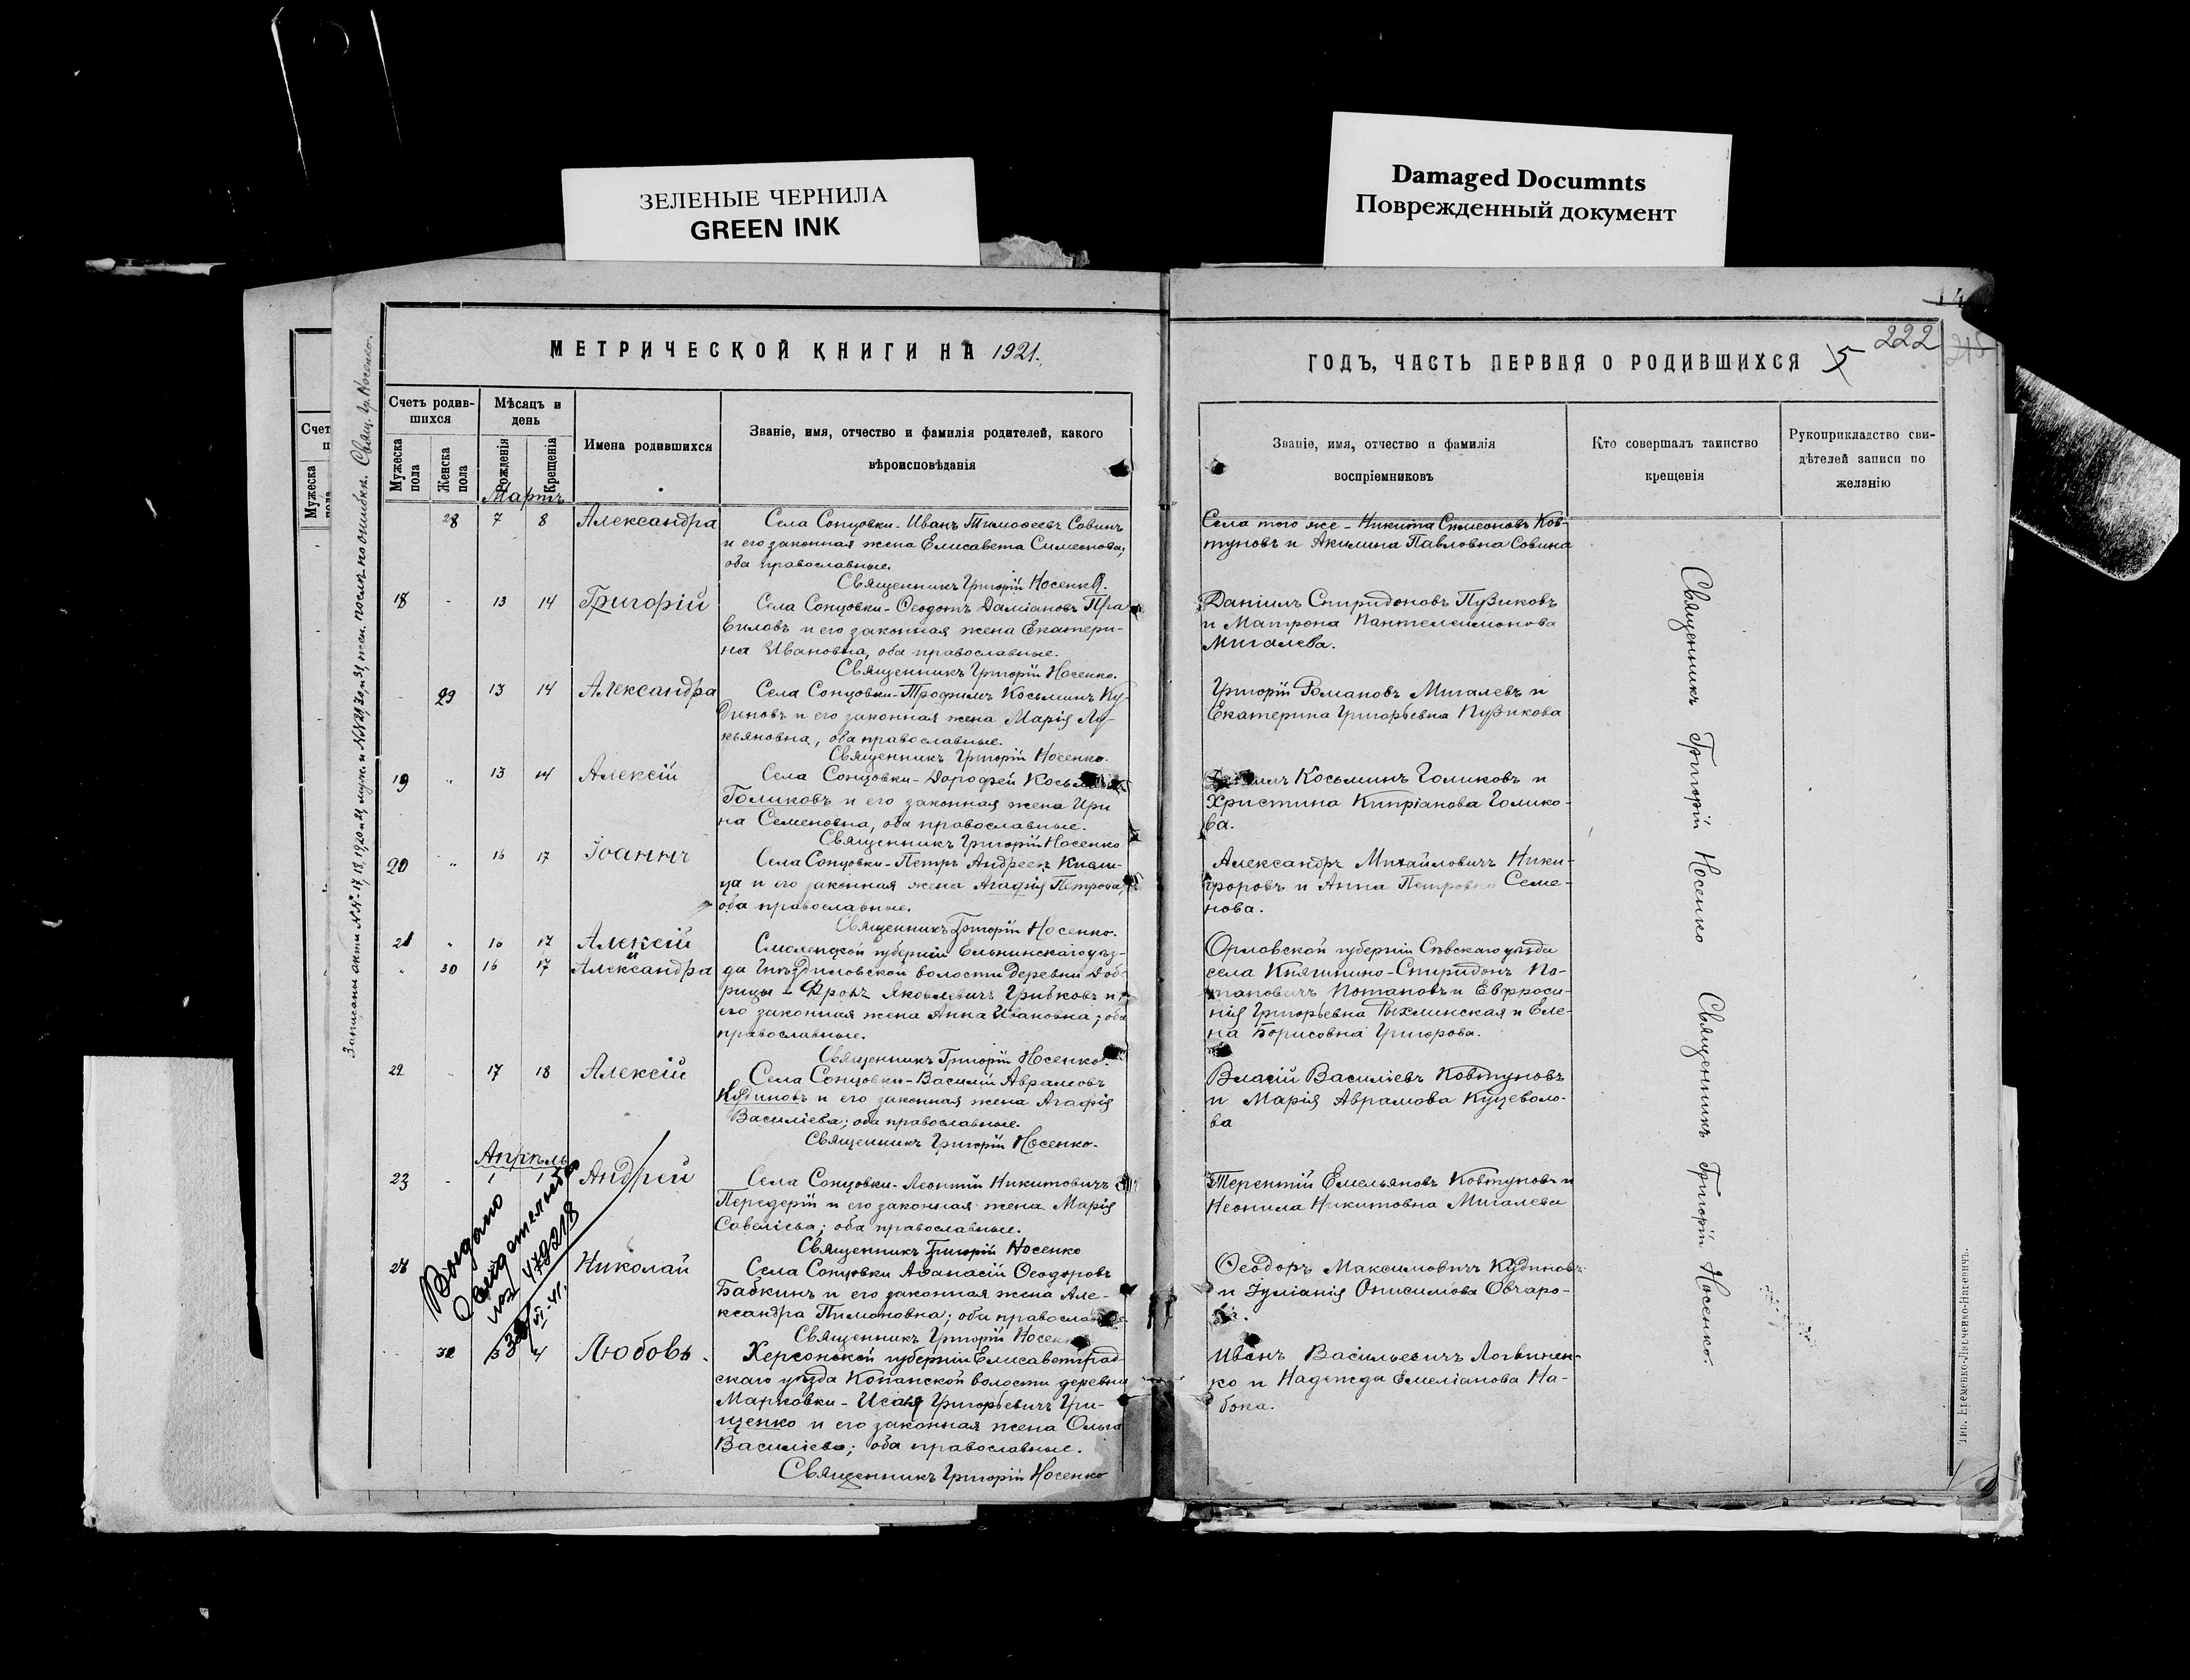 ЗЕЛЕНЫЕ ЧЕРНИЛА
GREEN INK
Damaged Documnts
Поврежденный документ
МЕТРИЧЕСКОЙ КНИГИ НА 1921.
Счетъ родив-
шихся
Мѣсяцъ и
день
Мужеска
пола
Женска
пола
Рожденія
Крещенія
Имена родившихся
Званіе, имя, отчество и фамилія родителей, какого
вѣроисповѣданія
Мартъ
28 7 8 Александра
Села Сонцовки - Иванъ Тимофеевъ Совинъ
и его законная жена Елисавета Симеонова,
оба православные.
Священникъ Григорій Носенко.
18 - 13 14 Григорій
Села Сонцовки - Ѳеодотъ Даміановъ Пра
виловъ и его законная жена Екатери-
на Ивановна, оба православные.
Священникъ Григорій Носенко.
29 13 14 Александра
Села Сонцовки - Трофимъ Косьминъ Ку-
диновъ и его законная жена Марія Лу-
кьяновна, оба православные.
Священникъ Григорій Носенко.
19 " 13 14 Алексій
Села Сонцовки - Дорофей
Голиковъ и его законная жена Ири
на Семеновна, оба православные.
Священникъ Григорій Носенко
20 " 16 17 Іоаннъ
Села Сонцовки - Петръ Андреевъ
ца и его законная жена Агафія Петрова,
оба православные.
Священникъ Григорій Носенко.
21 " 16 17 Алексій
и
" 30 16 17 Александра
Смоленской губерніи Ельнинскаго уѣз-
да волости деревни Доб-
рицы - Фролъ Яковлевичъ Грибковъ и
его законная жена Анна Ивановна; оба
православные.
Священникъ Григорій Носенко.
22 - 17 18 Алексій
Села Сонцовки - Василій Аврамовъ
Кудиновъ и его законная жена Агафія
Василіева; оба православные.
Священникъ Григорій Носенко.
Апрѣль
23 - 1 1 Андрей
Села Сонцовки - Леонтій Никитовичъ
Передерій и его законная жена Марія
Савеліева; оба православные.
Священникъ Григорій Носенко
24 Николай
Села Сонцовки Аѳанасій Ѳеодоровъ
Бабкинъ и его законная жена Але-
ксандра Пимоновна; оба
Священникъ Григорій
4 Любовь.
Херсонской губерніи Елисаветград-
скаго уѣзда Копанской волости деревни
Марковки - Исаія Григорьевичъ Гри-
щенко и его законная жена Ольга
Василіева; оба православные.
Священникъ Григорій Носенко
Выдано
Свидетельство
479218
VI-41.
Записаны акты №№ 17, 18, 19, 20 и 21 муж. и №№ 29, 30, и 31 жен. послѣ по ошибкѣ. Свящ. Гр. Носенко.
14
222
215
5
ГОДЪ, ЧАСТЬ ПЕРВАЯ О РОДИВШИХСЯ
Званіе, имя, отчество и фамилія
воспріемниковъ
Кто совершалъ таинство
крещенія
Рукоприкладство сви-
дѣтелей записи по
желанію
Села того же - Никита Симеоновъ Ков-
туновъ и Акилина Павловна Совина
Даніилъ Спиридоновъ Пузиковъ
и Матрона Пантелеимонова
Мигалева.
Григорій Романовъ Мигалевъ и
Екатерина Григорьевна Пузикова
Косьминъ Голиковъ и
Христина Кипріанова Голико-
ва.
Александръ Михайловичъ Ники-
форовъ и Анна Петровна Семе-
нова.
Орловской губерніи Сѣвскаго уѣзда
села Княгинино - Спиридонъ По-
таповичъ Потаповъ и Евфроси-
нія Григорьевна Рыхлинская и Еле-
на Борисовна Григорова.
Власій Василіевъ Ковтуновъ
и Марія Аврамова Куцеволо-
ва
Терентій Емельяновъ Ковтуновъ и
Неонила Никитовна Мигалева
Ѳеодоръ Максимовичъ Кудиновъ
и Іуліанія Онисимова Овчаро-
Иванъ Васильевичъ Логвинен-
ко и Надежда Емеліанова На-
бока.
Священникъ Григорій Носенко
Священникъ Григорій Носенко.